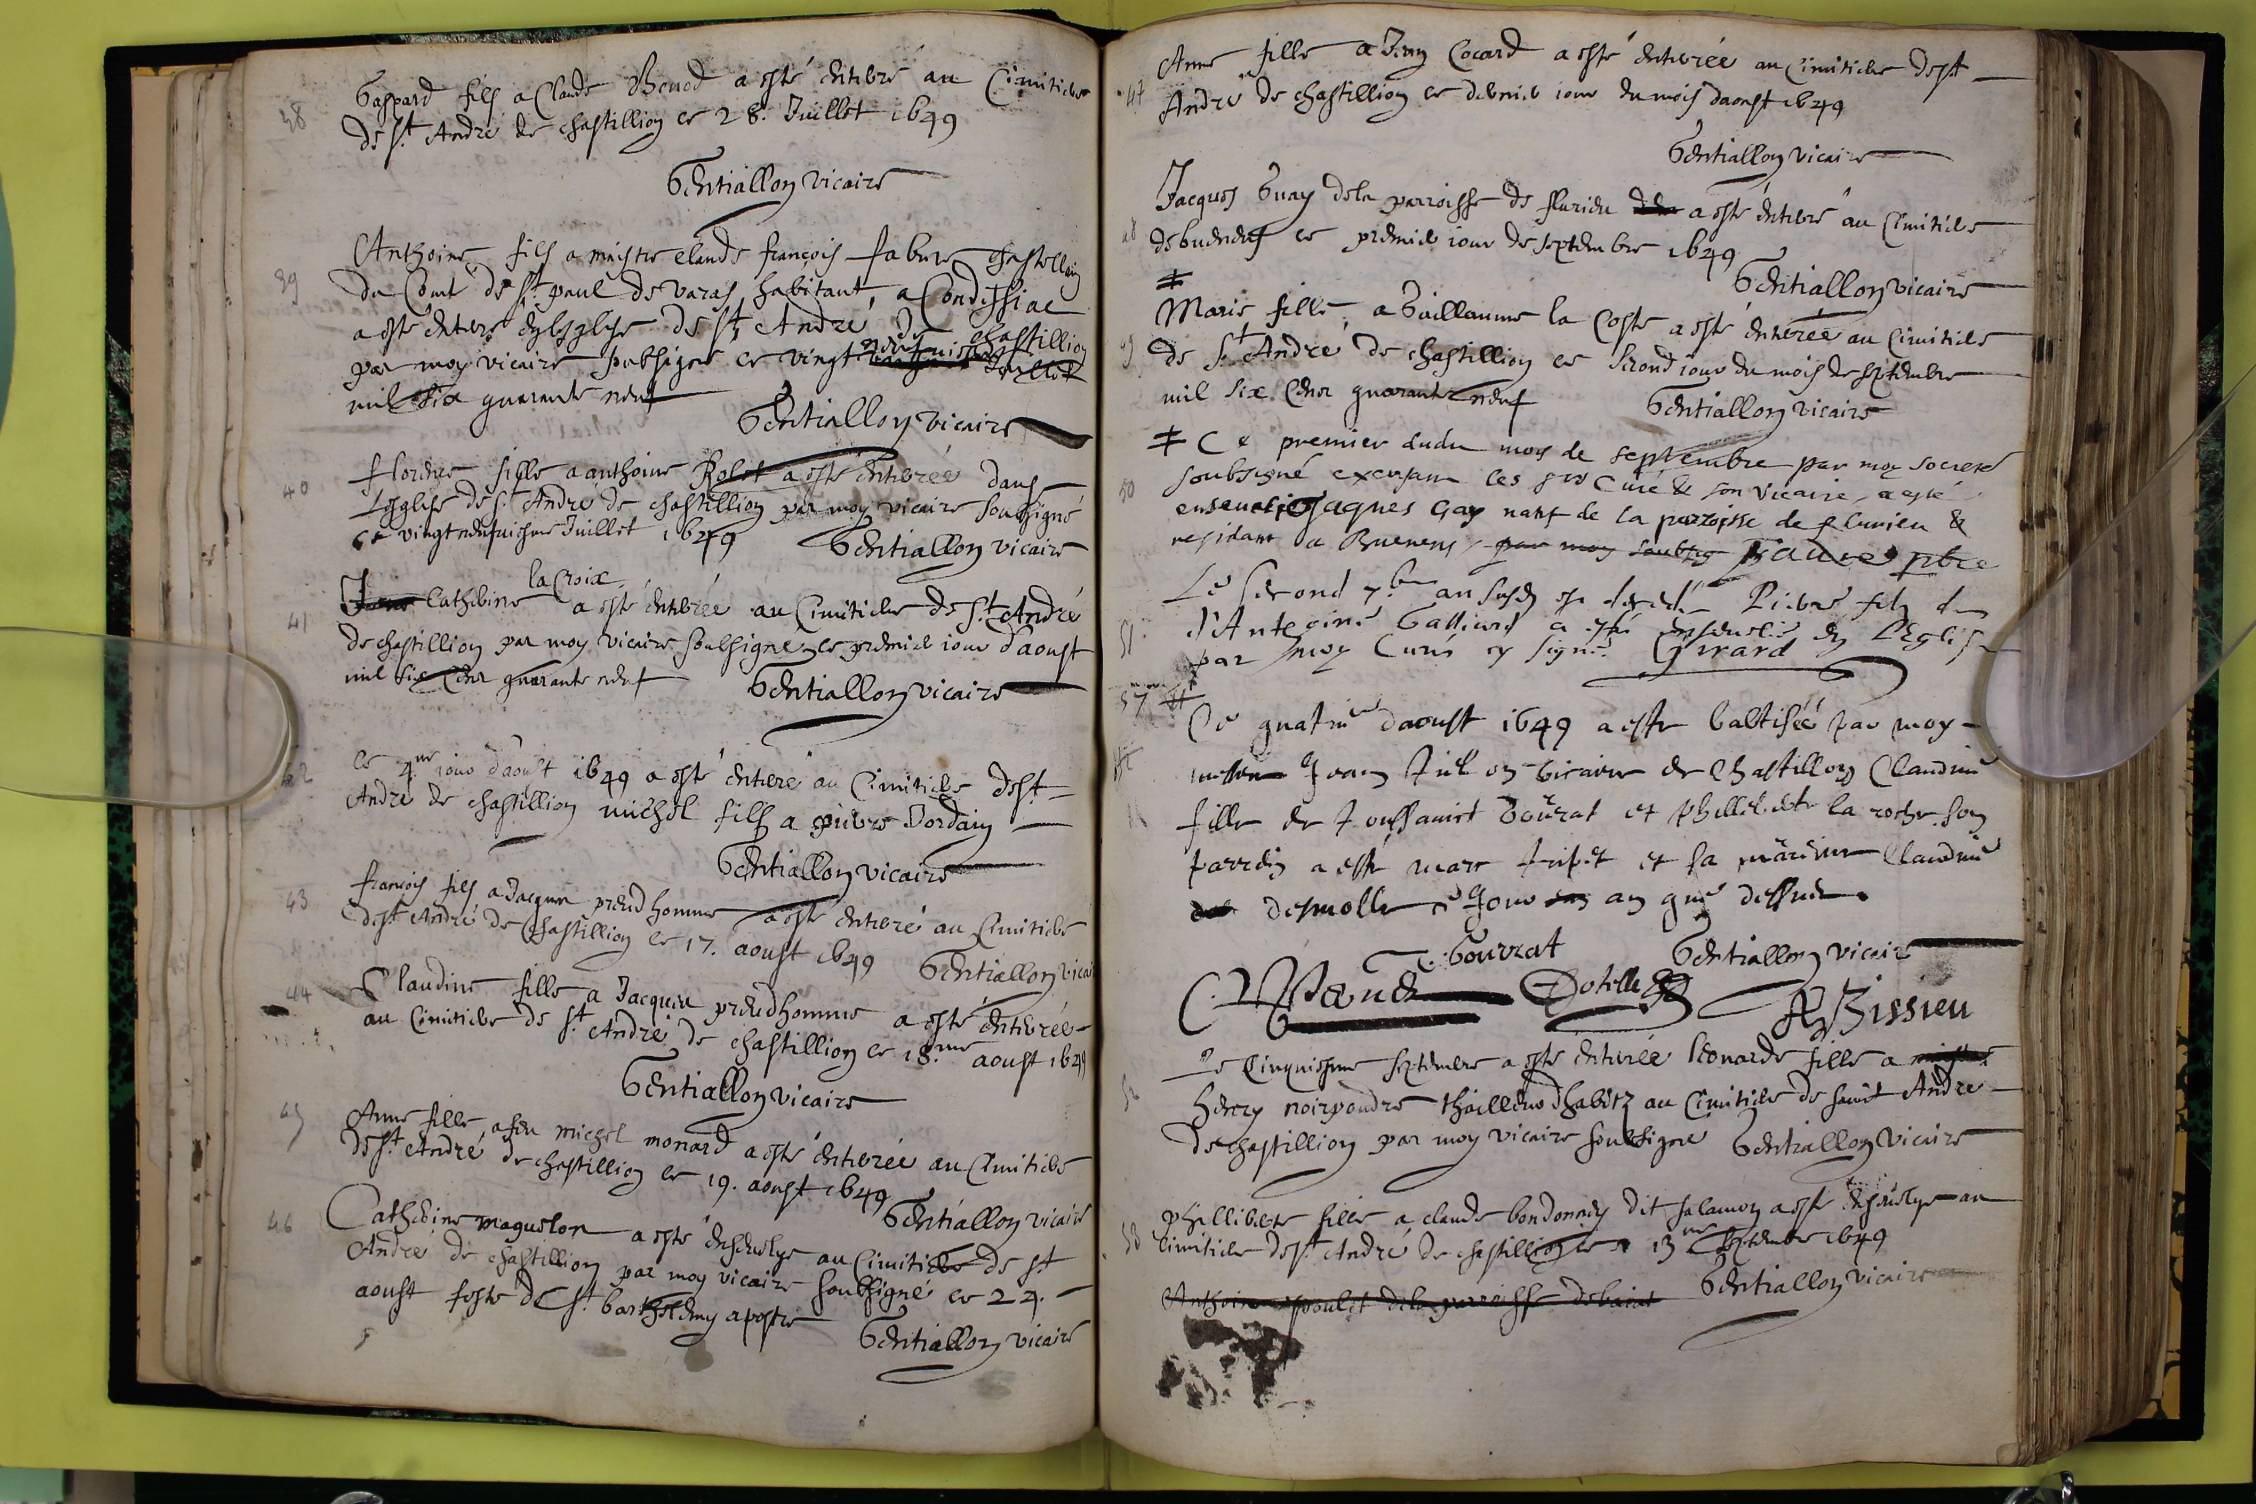 38 Gaspard fils a Claude Benod a esté enterré au Cimitiere
de st. André de chastillion ce 28. Juillet 1649
Gentiallon vicaire
39 Anthoine fils a maistre claude françois fabure chastellain
du Comté de st. paul de varas habitant a Condessiac
a esté enterré en lesglise de st André de chastillion
par moy vicaire soubsigné ce vingt neufuiesme Juillet
mil six quarante neuf
Gentiallon vicaire
40 fille a anthoine Rolet a esté enterrée dans
Lesglise de st. André de chastillion par moy vicaire soubsigné
ce vingt neufuiesme Juillet 1649 Gentiallon vicaire
la Croix
41 Catherine a esté enterrée au Cimitiere de st. André
de chastillion par moy vicaire soubsigné ce premier iour d'aoust
mil six Cent quarante neuf Gentiallon vicaire
42 ce 4me iour d'aoust 1649 a esté enterré au Cimitiere de st.
André de chastillion michel fils a pierre Jordain
Gentiallon vicaire
43 françois fils a Jacques preudhomme a esté enterré au Cimitiere
de st André de Chastillion ce 17. aoust 1649 Gentiallon vicai
44 Claudine fille a Jacques preudhomme a esté enterrée
au Cimitiere de st. André de chastillion ce 18.me aoust 1649
Gentiallon vicaire
45 Anne fille a feu michel monard a esté enterrée au Cimitiere
de st. André de chastillion ce 19. aoust 1649
Gentiallon vicaire
46 Catherine maguelon a esté ensevelye au Cimitiere de st
André de chastillion par moy vicaire soubsigné ce 24.
aoust feste de st. barthelemy apostre
Gentiallon vicaire
47 Anne fille a Jean Cocard a esté enterrée au Cimitiere de st
André de chastillion ce dernier iour du mois d'aoust 1649
Gentiallon vicaire
48 Jacques Guay de la parroisse de flurieu a esté enterré au Cimitiere
de buenenf ce premier iour de septembre 1649
‡ Gentiallon vicaire
49 Marie fille a Guillaume la Coste a esté enterrée au Cimitiere
de st. André de chastillion ce second iour du mois de septembre
mil six Cent quarante neuf Gentiallon vicaire
50 ‡ Ce premier dudit mois de septembre par moy societé
soubsigné excusant les srs Curé & son vicaire a esté
enseueli Jaques Gay natif de la parroisse de flurieu &
residant a Buenens par moy soubsig faure pbre
51 Le second 7bre an susd
d'Antoine Galliard a esté enseueli en L'Eglise
par moy Curé sy signé Girard
57 Ce quatrie d'aoust 1649 a este baltisée par moy
messire Jean vicaire de Chastillon Claudine
fille de Toussainct Bourat et Phillibete la roche son
parrein a este marc tripet et sa mareine Claudine
desmolle Jour an que dessus.
T. Bourrat Gentiallon vicaire
A Bissieu
52 Le Cinquiesme septembre a esté enterrée Leonarde fille a
henry noirpoudre thailleur dhabitz au Cimitiere de sainct André
de chastillion par moy vicaire soubsigné Gentiallon vicaire
53 phillibete fille a claude bondonnes dit salamon a esté ensevelye au
Cimitiere de st. André de chastillion ce 13me septembre 1649
Anthoine poulet de la parroisse de baint Gentiallon vicaire